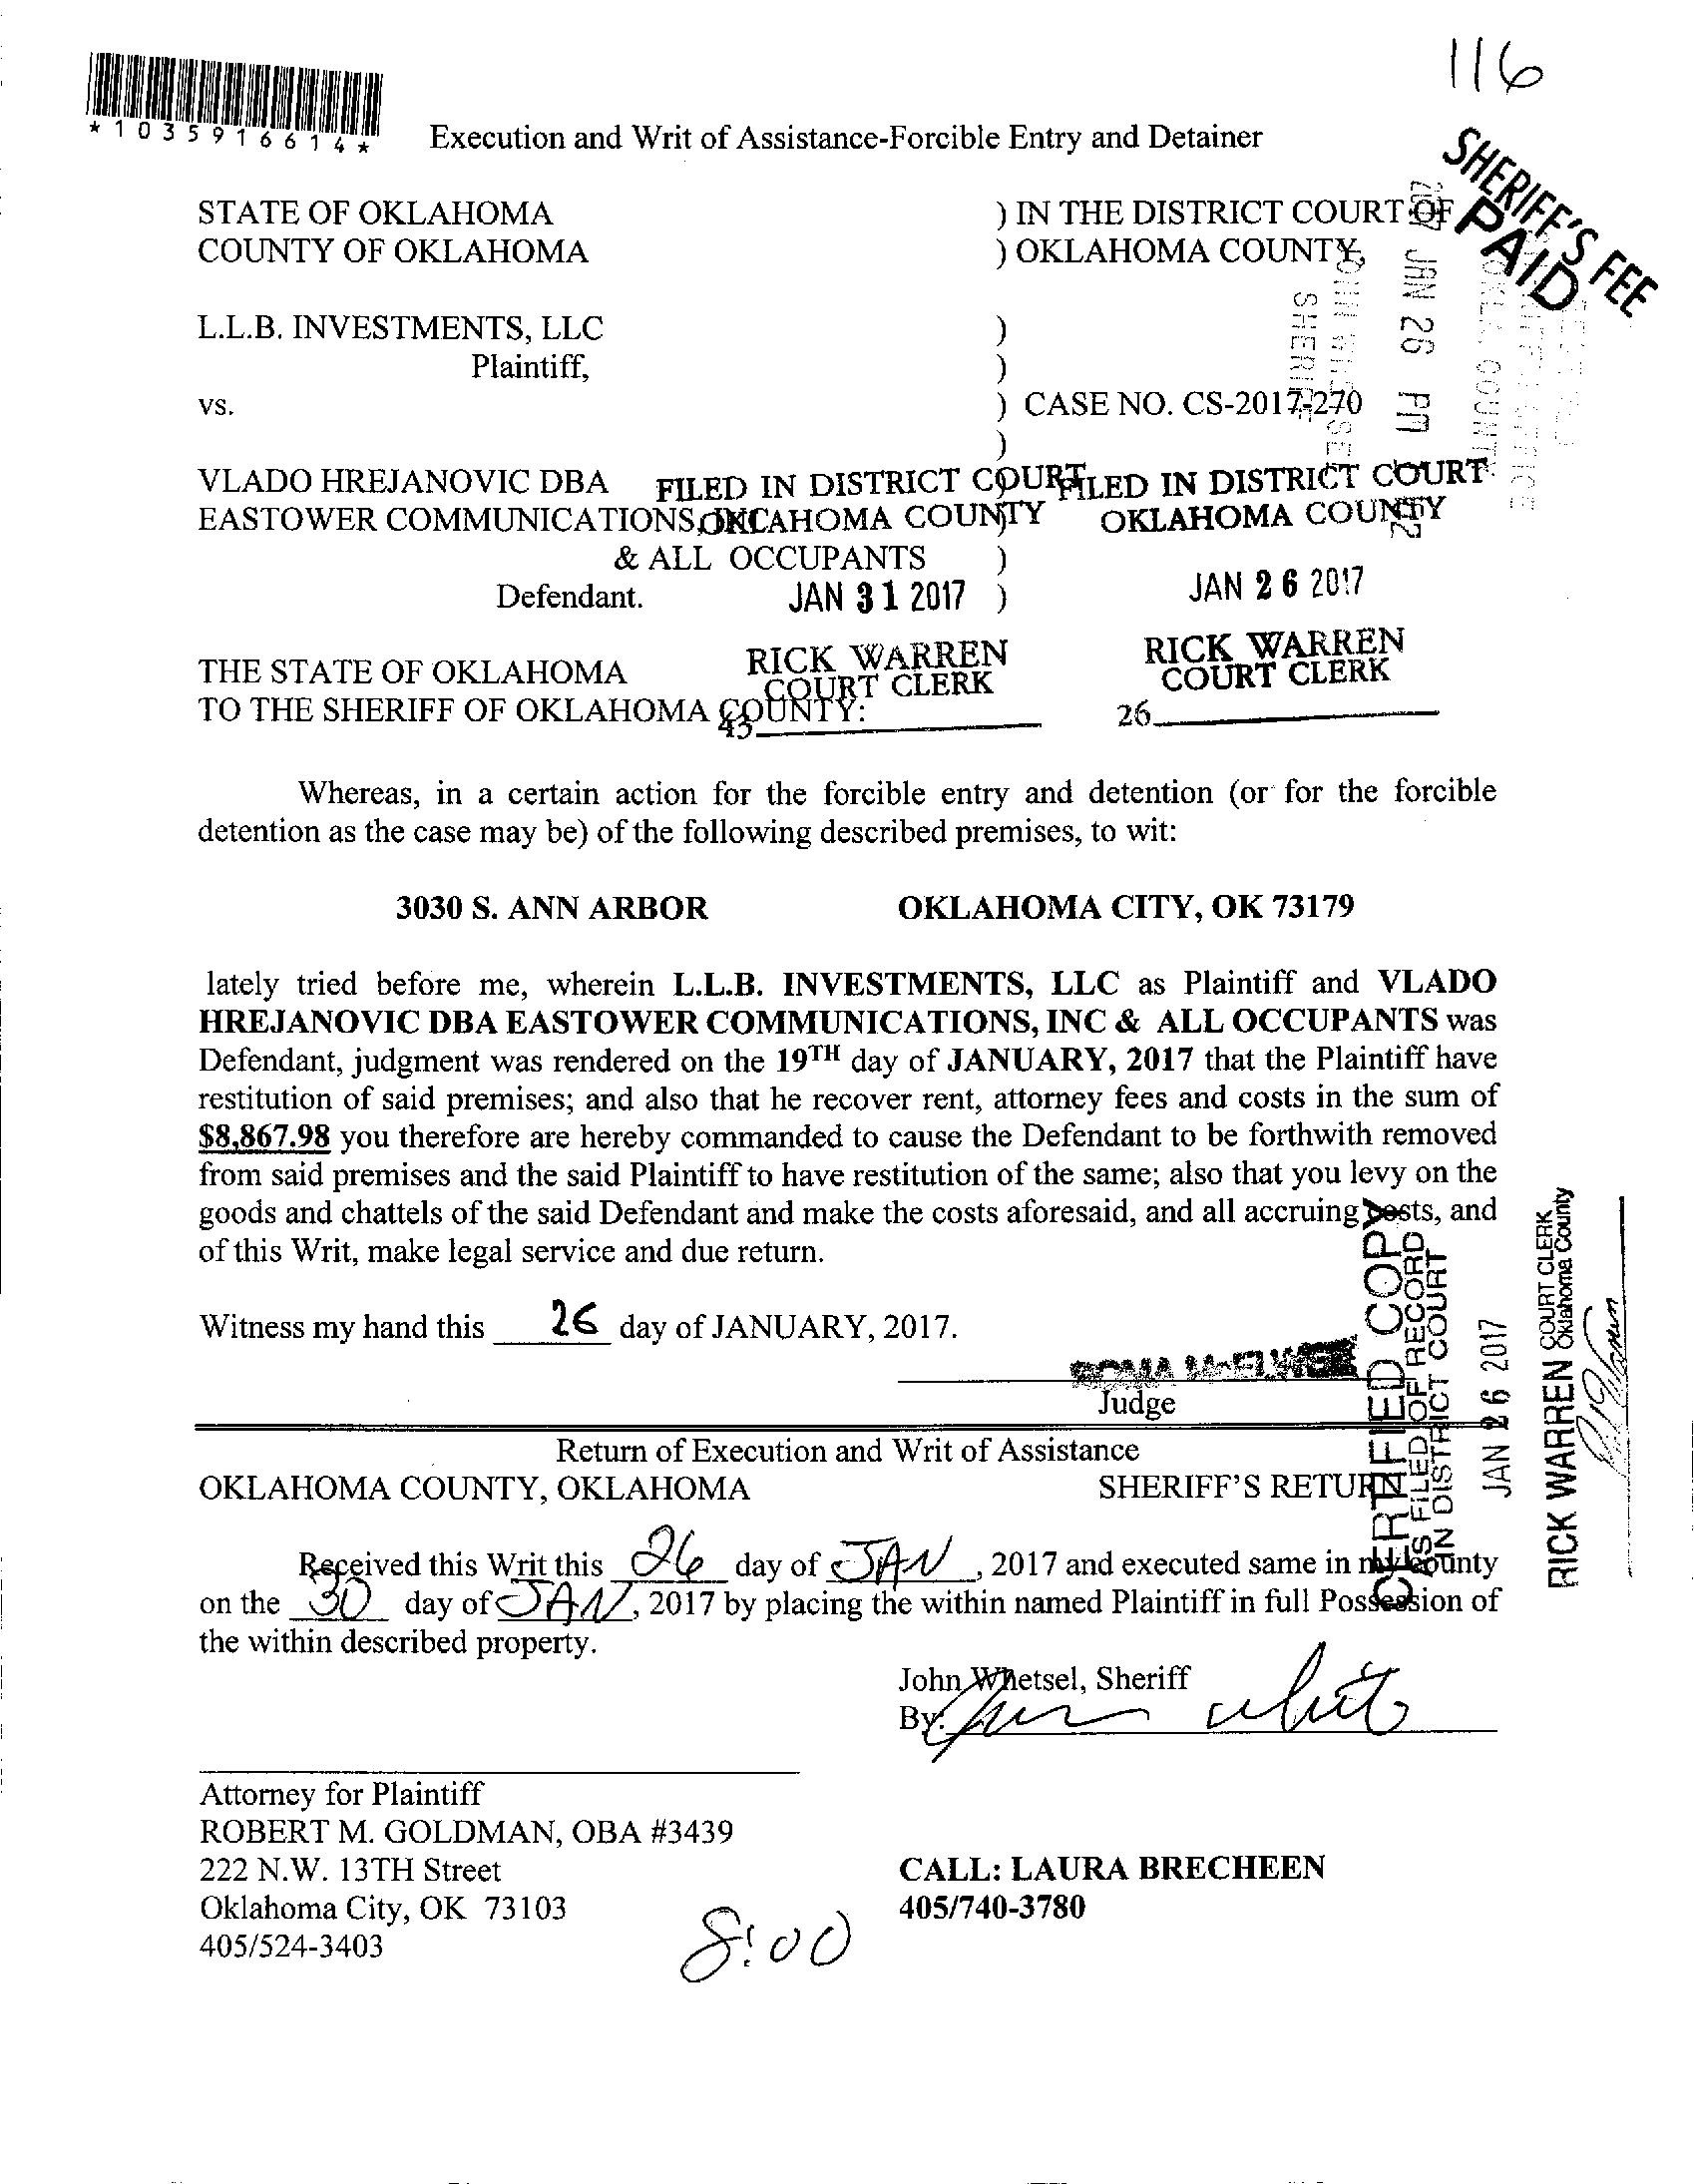 116
*1035916614*
Execution and Writ of Assistance-Forcible Entry and Detainer
SHERIFF'S FEE
PAID
STATE OF OKLAHOMA ) IN THE DISTRICT COURT OF
COUNTY OF OKLAHOMA ) OKLAHOMA COUNTY,
JAN 26 PM
SHERIFF
L.L.B. INVESTMENTS, LLC )
Plaintiff, )
vs. ) CASE NO. CS-2017-270
)
VLADO HREJANOVIC DBA
EASTOWER COMMUNICATIONS, )
& ALL OCCUPANTS )
Defendant. )
FILED IN DISTRICT COURT
OKLAHOMA COUNTY
JAN 31 2017
RICK WARREN
COURT CLERK
43
FILED IN DISTRICT COURT
OKLAHOMA COUNTY
JAN 26 2017
RICK WARREN
COURT CLERK
26
THE STATE OF OKLAHOMA
TO THE SHERIFF OF OKLAHOMA COUNTY:
Whereas, in a certain action for the forcible entry and detention (or for the forcible
detention as the case may be) of the following described premises, to wit:
3030 S. ANN ARBOR OKLAHOMA CITY, OK 73179
lately tried before me, wherein L.L.B. INVESTMENTS, LLC as Plaintiff and VLADO
HREJANOVIC DBA EASTOWER COMMUNICATIONS, INC & ALL OCCUPANTS was
Defendant, judgment was rendered on the 19TH day of JANUARY, 2017 that the Plaintiff have
restitution of said premises; and also that he recover rent, attorney fees and costs in the sum of
$8,867.98 you therefore are hereby commanded to cause the Defendant to be forthwith removed
from said premises and the said Plaintiff to have restitution of the same; also that you levy on the
goods and chattels of the said Defendant and make the costs aforesaid, and all accruing costs, and
of this Writ, make legal service and due return.
Witness my hand this 26 day of JANUARY, 2017.
Judge
CERTIFIED COPY
AS FILED OF RECORD
IN DISTRICT COURT
JAN 26 2017
RICK WARREN COURT CLERK
Oklahoma County
Return of Execution and Writ of Assistance
OKLAHOMA COUNTY, OKLAHOMA SHERIFF'S RETURN
Received this Writ this 26 day of JAN, 2017 and executed same in my county
on the 30 day of JAN, 2017 by placing the within named Plaintiff in full Possession of
the within described property.
John Whetsel, Sheriff
By:
Attorney for Plaintiff
ROBERT M. GOLDMAN, OBA #3439
222 N.W. 13TH Street
Oklahoma City, OK 73103
405/524-3403
CALL: LAURA BRECHEEN
405/740-3780
8:00